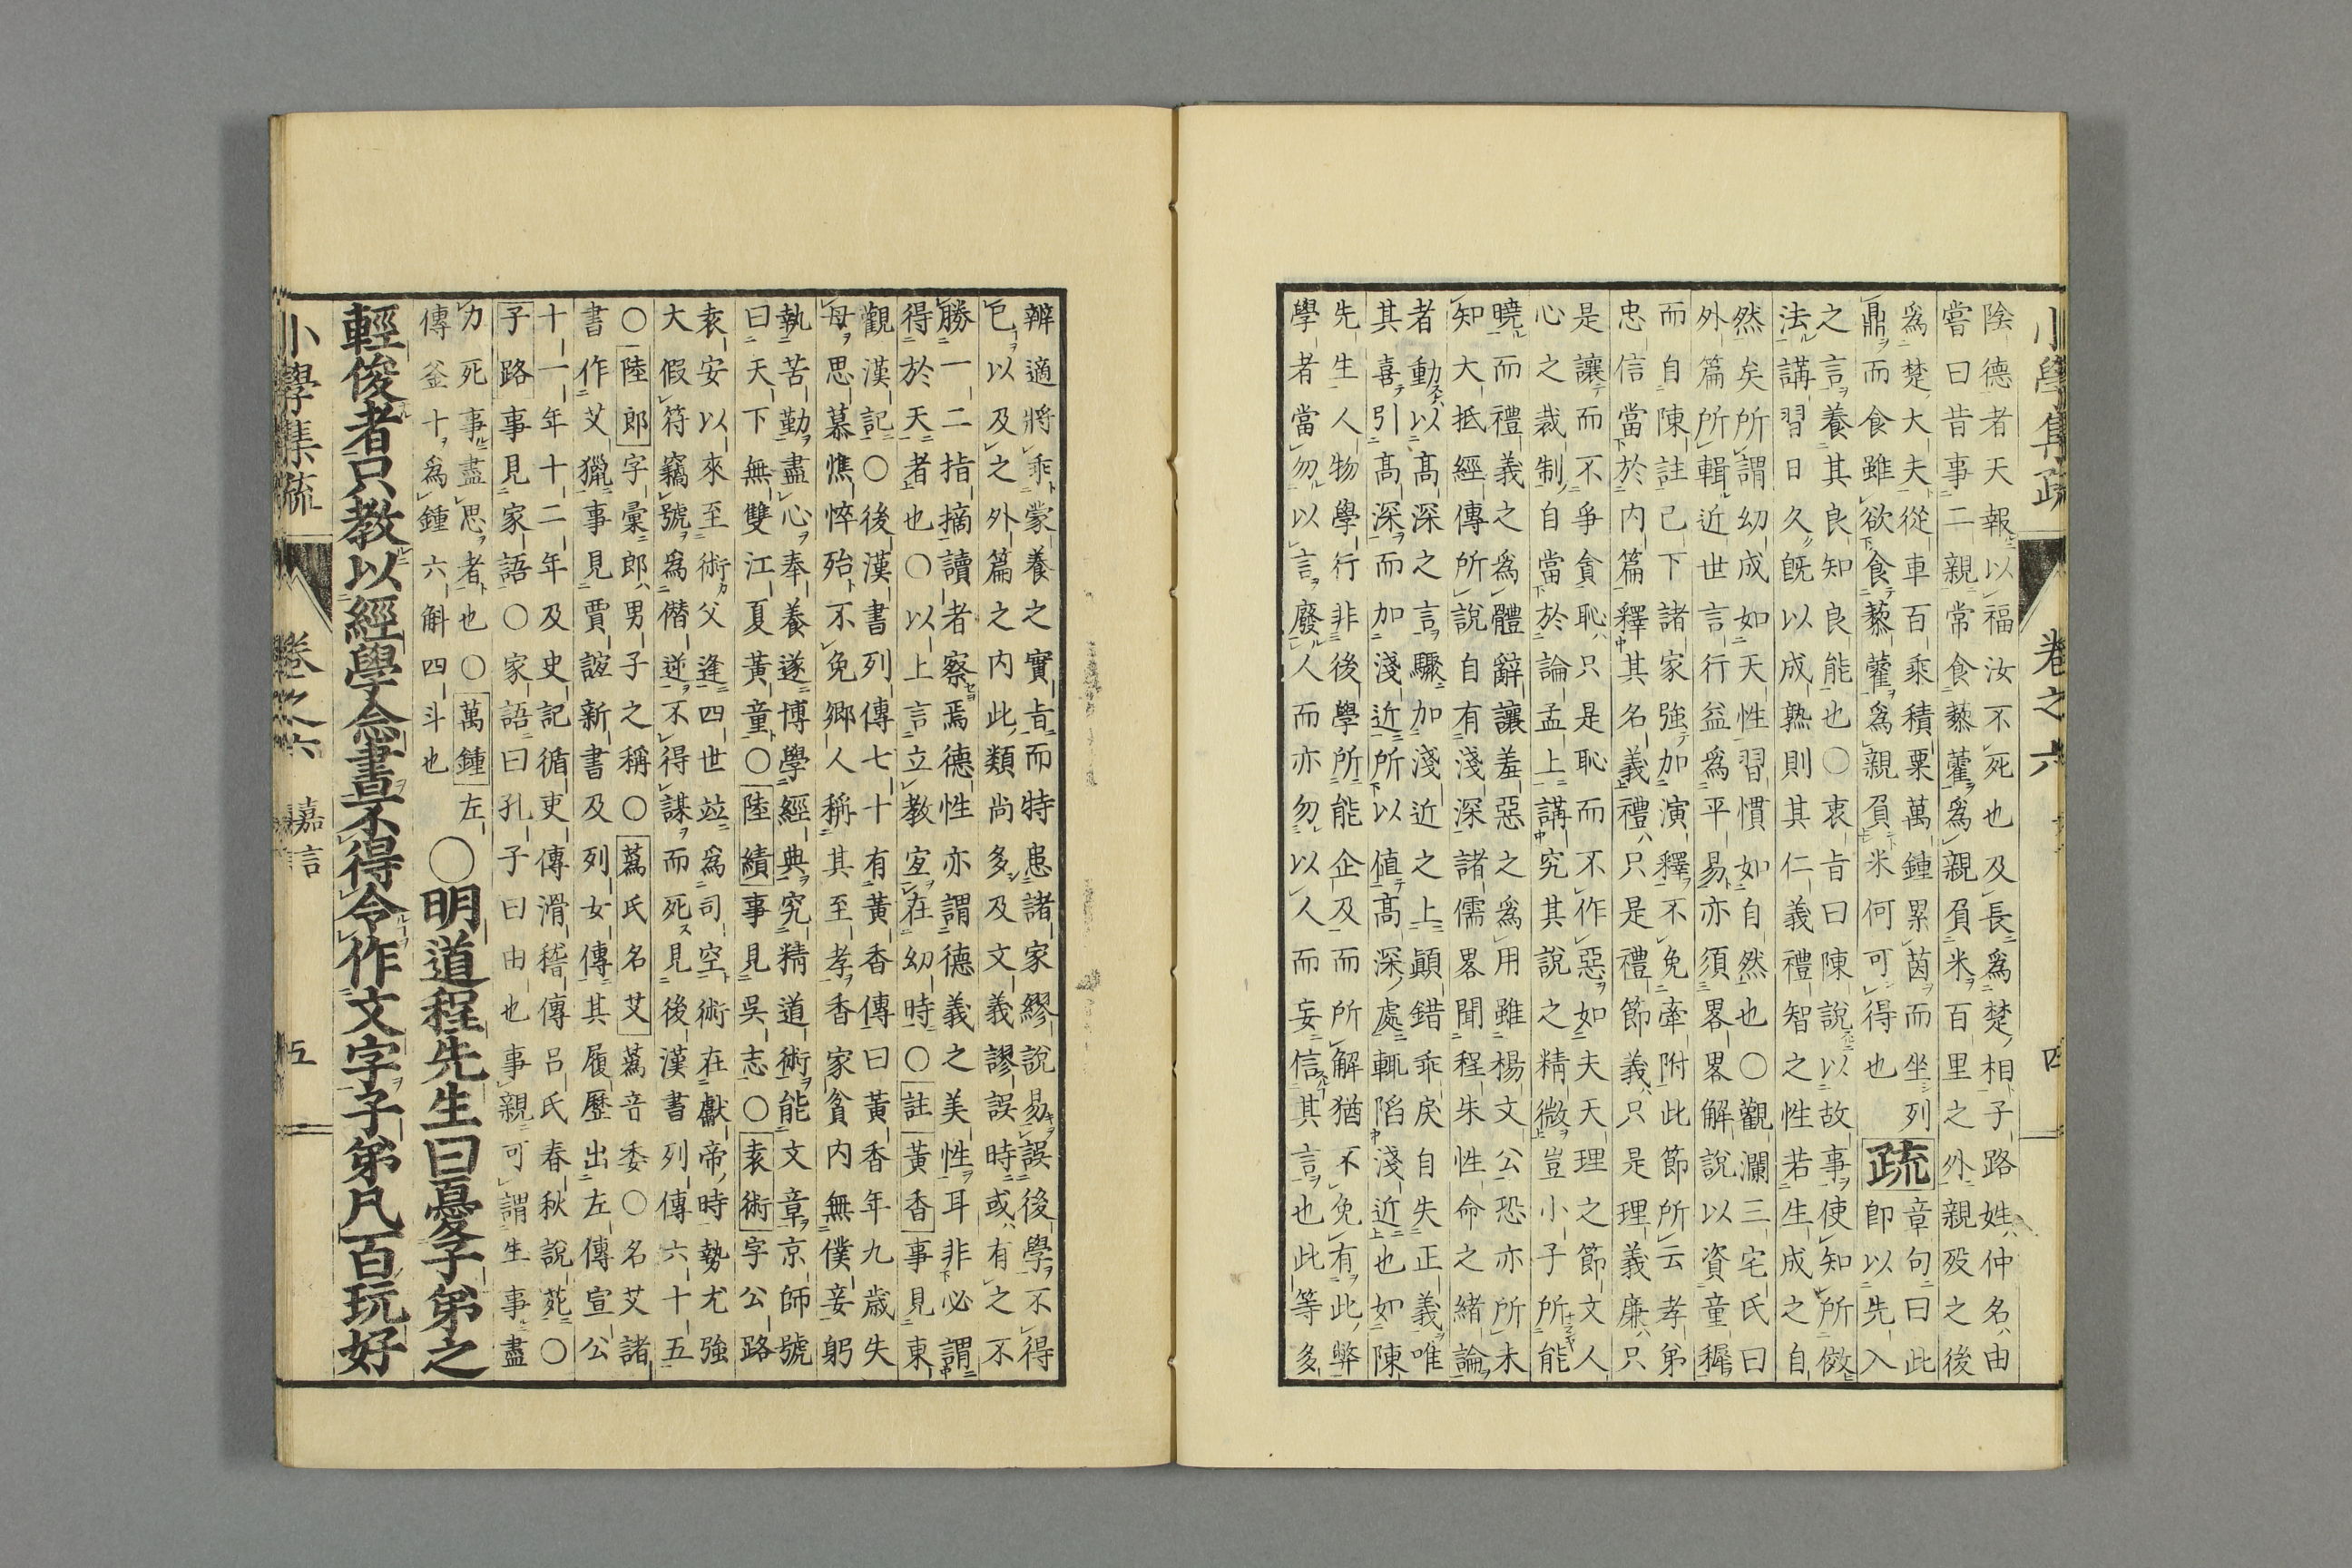 小學集疏 卷之六 四
陰德者天報以福汝不死也及長爲楚相子路姓仲名由
嘗曰昔事二親常食藜藿爲親負米百里之外親歿之後
爲楚大夫從車百乘積粟萬鍾累茵而坐列
鼎而食雖欲食藜藿爲親負米何可得也
疏
章句曰此
卽以先入
之言養其良知良能也〇衷旨曰陳說以故事使知所倣
法講習日久旣以成熟則其仁義禮智之性若生成之自
然矣所謂幼成如天性習慣如自然也〇觀瀾三宅氏曰
外篇所輯近世言行益爲平易亦須畧畧解說以資童穉
而自陳註已下諸家強加演釋不免牽附此節所云孝弟
忠信當於内篇釋其名義禮只是禮節義只是理義廉只
是讓而不爭貪恥只是恥而不作惡如夫天理之節文人
心之裁制自當於論孟上講究其說之精微豈小子所能
曉而禮義之爲體辭讓羞惡之爲用雖楊文公恐亦所未
知大抵經傳所說自有淺深諸儒畧聞程朱性命之緒論
者動以髙深之言驟加淺近之上顚錯乖戾自失正義唯
其喜引髙深而加淺近所以値髙深處輒陷淺近也如陳
先生人物學行非後學所能企及而所解猶不免有此弊
學者當勿以言廢人而亦勿以人而妄信其言也此等多
辨適將乖蒙養之實旨而特患諸家繆說易誤後學不得
已以及之外篇之内此類尚多及文義謬誤時或有之不
勝一二指摘讀者察焉德性亦謂德義之美性耳非必謂
得於天者也〇以上言立教宜在幼時〇註黃香事見東
觀漢記〇後漢書列傳七十有黃香傳曰黃香年九歲失
母思慕憔悴殆不免鄉人稱其至孝香家貧内無僕妾躬
執苦勤盡心奉養遂博學經典究精道術能文章京師號
曰天下無雙江夏黃童〇陸績事見吳志〇袁術字公路
袁安以來至術父逢四世竝爲司空術在獻帝時勢尤強
大假符竊號爲僭逆不得謀而死見後漢書列傳六十五
〇陸郎字彙郎男子之稱〇蔿氏名艾蔿音委〇名艾諸
書作艾獵事見賈誼新書及列女傳其履歷出左傳宣公
十一年十二年及史記循吏傳滑稽傳呂氏春秋說苑〇
子路事見家語〇家語曰孔子曰由也事親可謂生事盡
力死事盡思者也〇萬鍾左
傳釜十爲鍾六斛四斗也
〇明道程先生曰憂子弟之
輕俊者只教以經學念書不得令作文字子弟凡百玩好
小學集疏 卷之六 嘉言 五